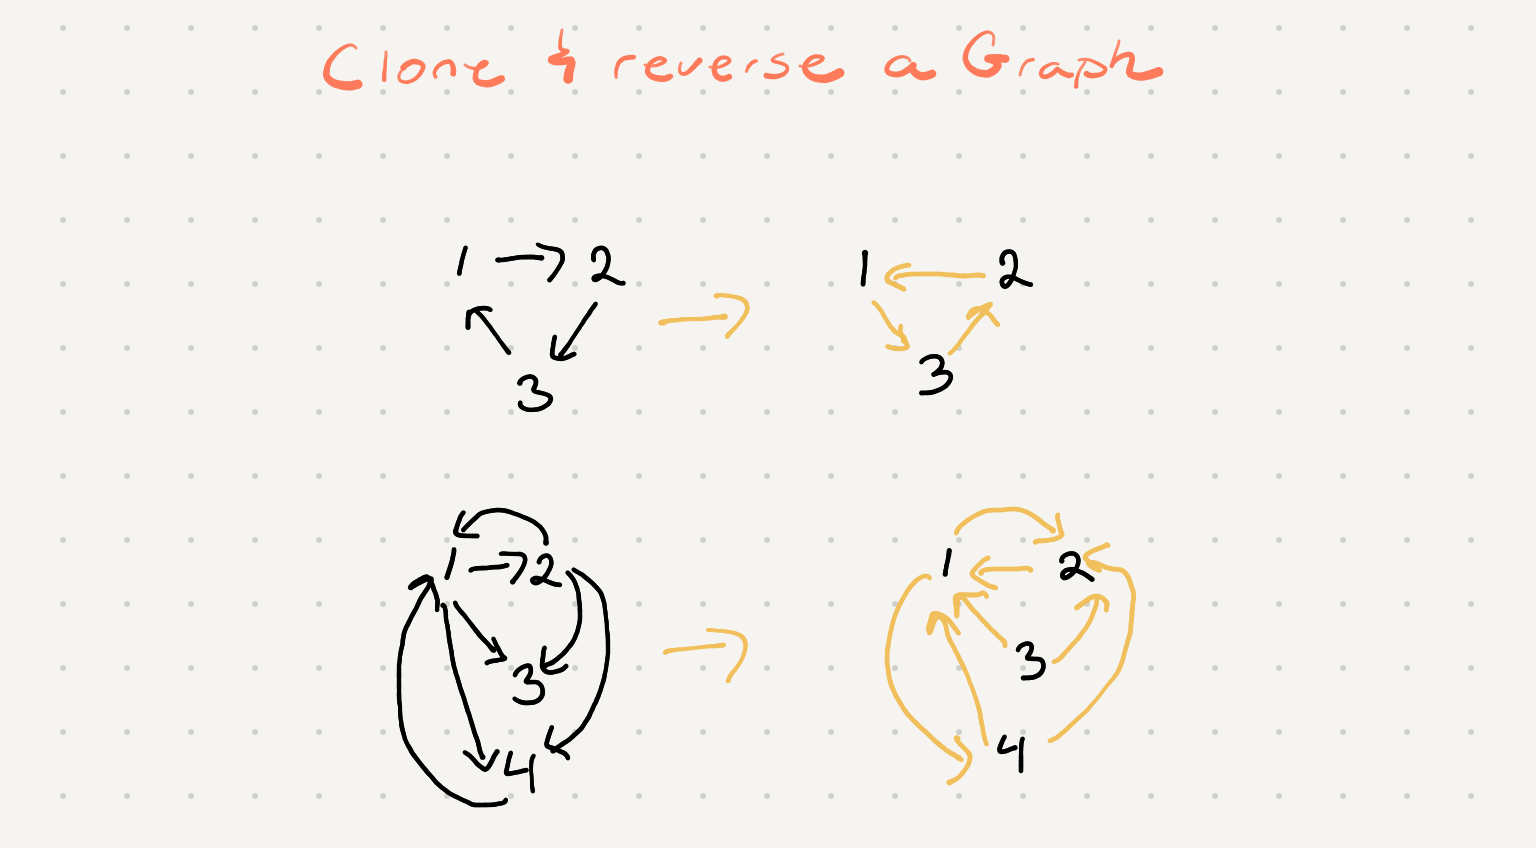 Clone & reverse a Graph
1 → 2 → 1 ← 2
3 3
1 → 2 → 1 ← 2
3 3
4 4